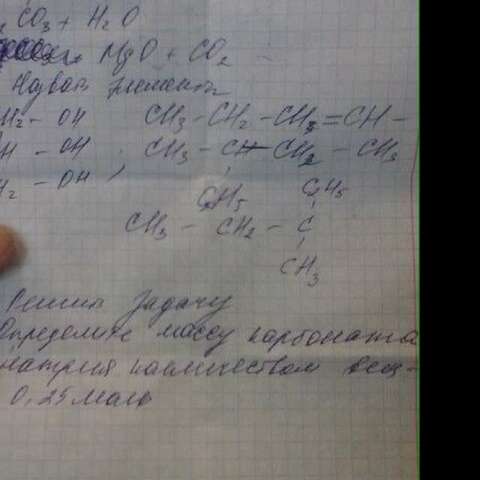 CO3 + H2O
MgO + CO2
Назвать
H2 - OH CH3 - CH2 - CH3 = CH -
H - OH , CH3 - CH - CH2 - CH3
H2 - OH , C2H5 C2H5
CH3 - CH2 - C
CH3
Решить задачу
Определите массу карбоната
натрия количеством вещ-
0,25 моль